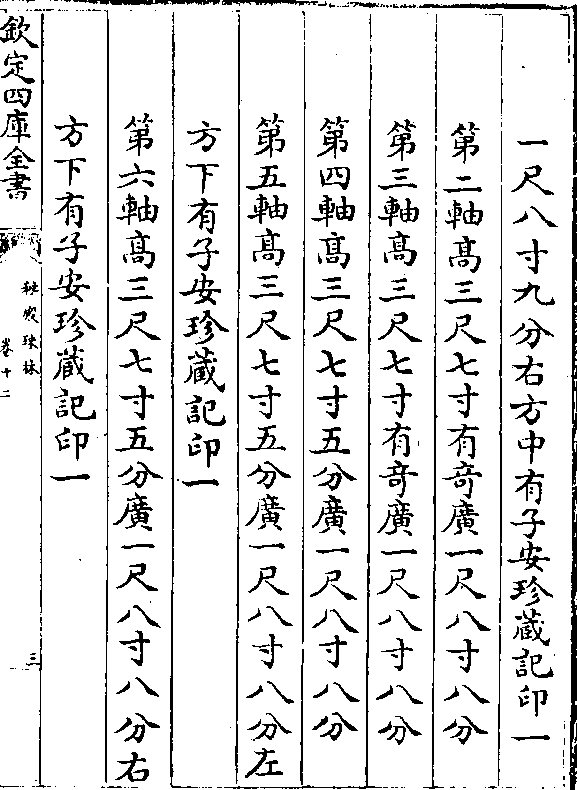 一尺八寸九分右方中有子安珍蔵記印一
第二軸髙三尺七寸有竒廣一尺八寸八分
第三軸髙三尺七寸有竒廣一尺八寸八分
第四軸髙三尺七寸五分廣一尺八寸八分
第五軸髙三尺七寸五分廣一尺八寸八分左
方下有子安珍蔵記印一
第六軸髙三尺七寸五分廣一尺八寸八分右
方下有子安珍蔵記印一
欽定四庫全書
秘殿珠林
卷十二
三